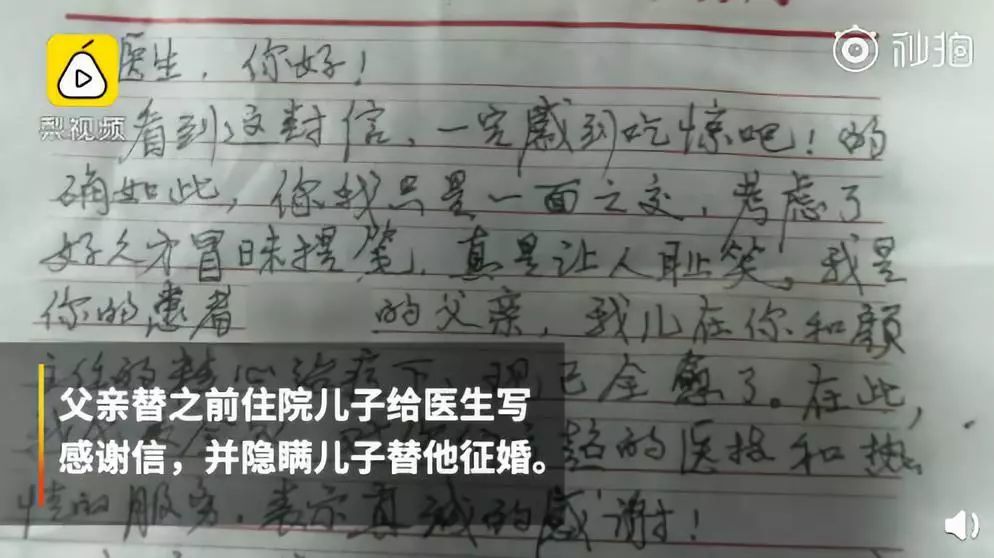 秒拍
梨视频
医生，你好！
看到这封信，一定感到吃惊吧！的
确如此，你我只是一面之交，考虑了
好久才冒昧提笔，真是让人耻笑。我是
你的患者 的父亲，我儿在你和颜
主任的精心治疗下，现已全愈了。在此，
超的医技和热
情的服务，表示真诚的感谢！
父亲替之前住院儿子给医生写
感谢信，并隐瞒儿子替他征婚。